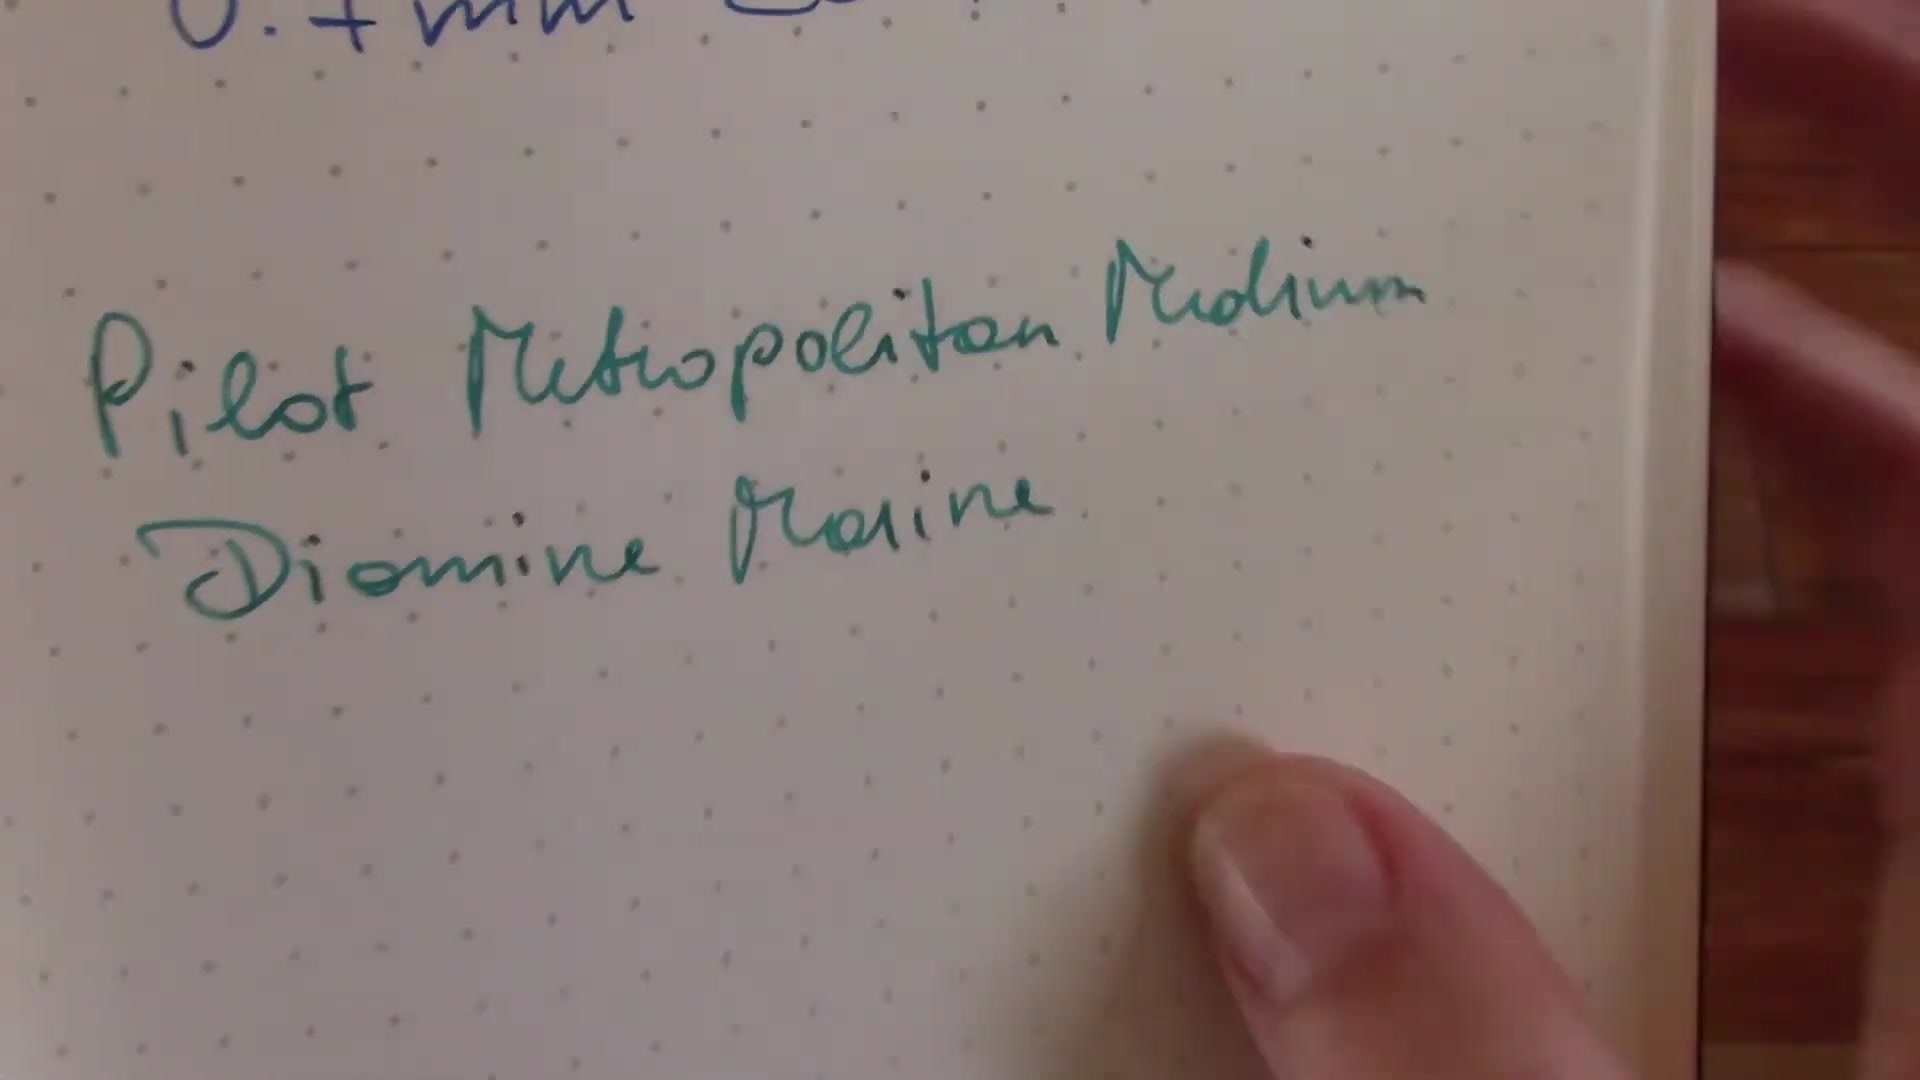 0.7mm
Pilot Metropolitan Medium
Diamine Marine